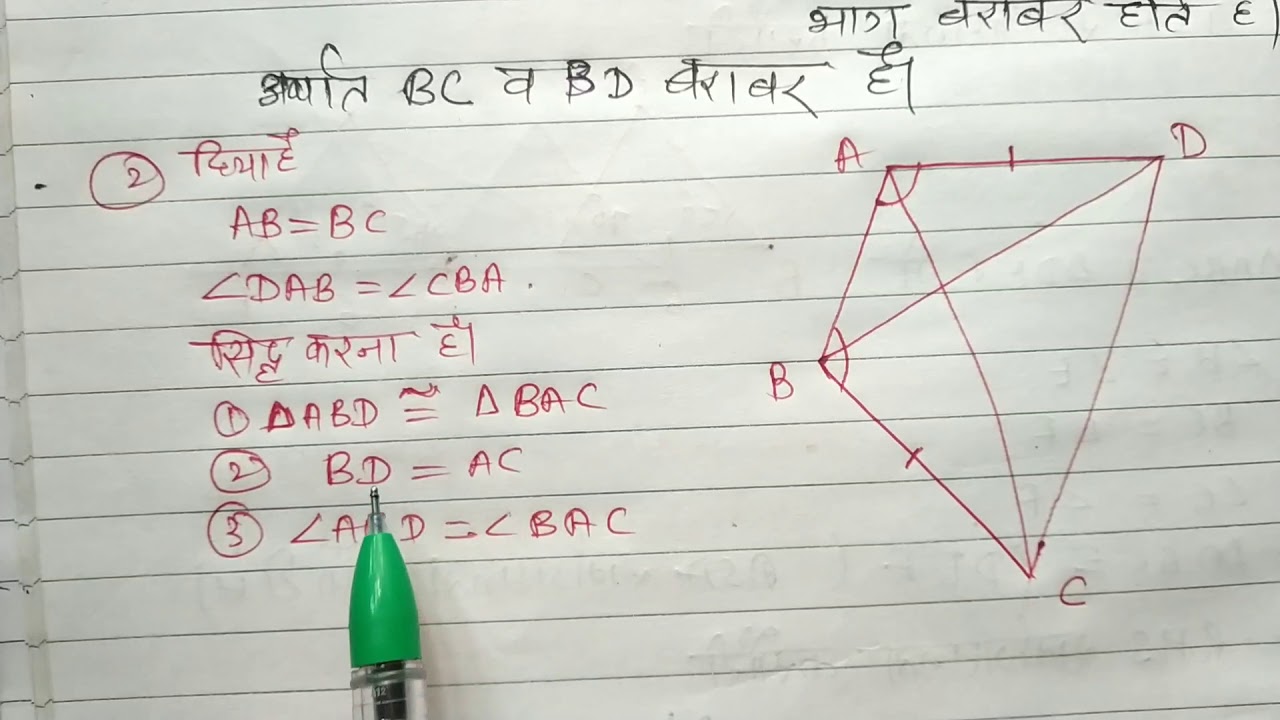 भाग बराबर होते है।
अर्थात BC व BD बराबर है।
② दिया है
AB = BC
∠DAB = ∠CBA .
सिद्ध करना है।
① ΔABD ≅ Δ BAC
② BD = AC
③ ∠A D = ∠BAC
A
D
B
C